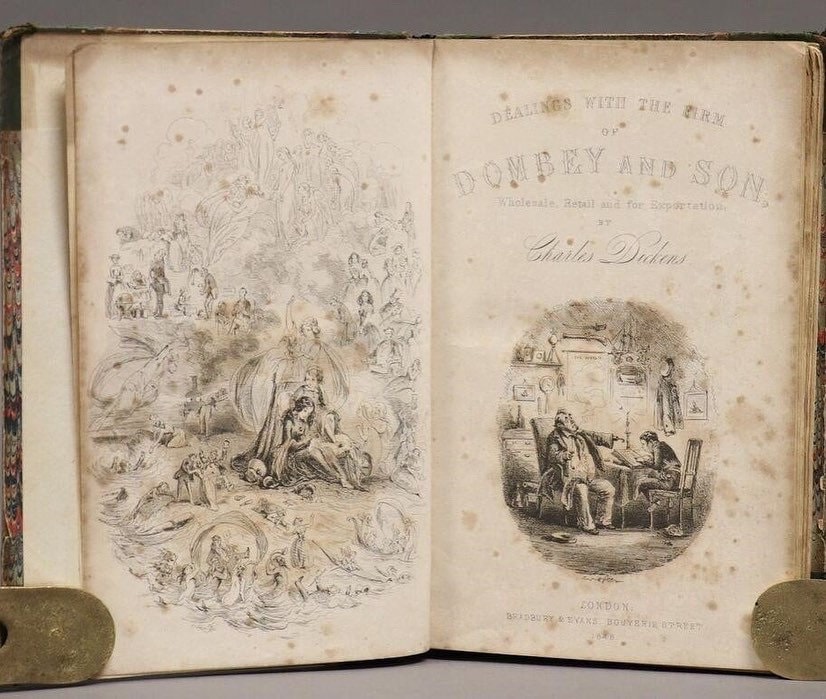 DEALINGS WITH THE FIRM
OF
DOMBEY AND SON,
Wholesale, Retail and for Exportation.
BY
Charles Dickens
LONDON:
BRADBURY & EVANS, BOUVERIE STREET
1848